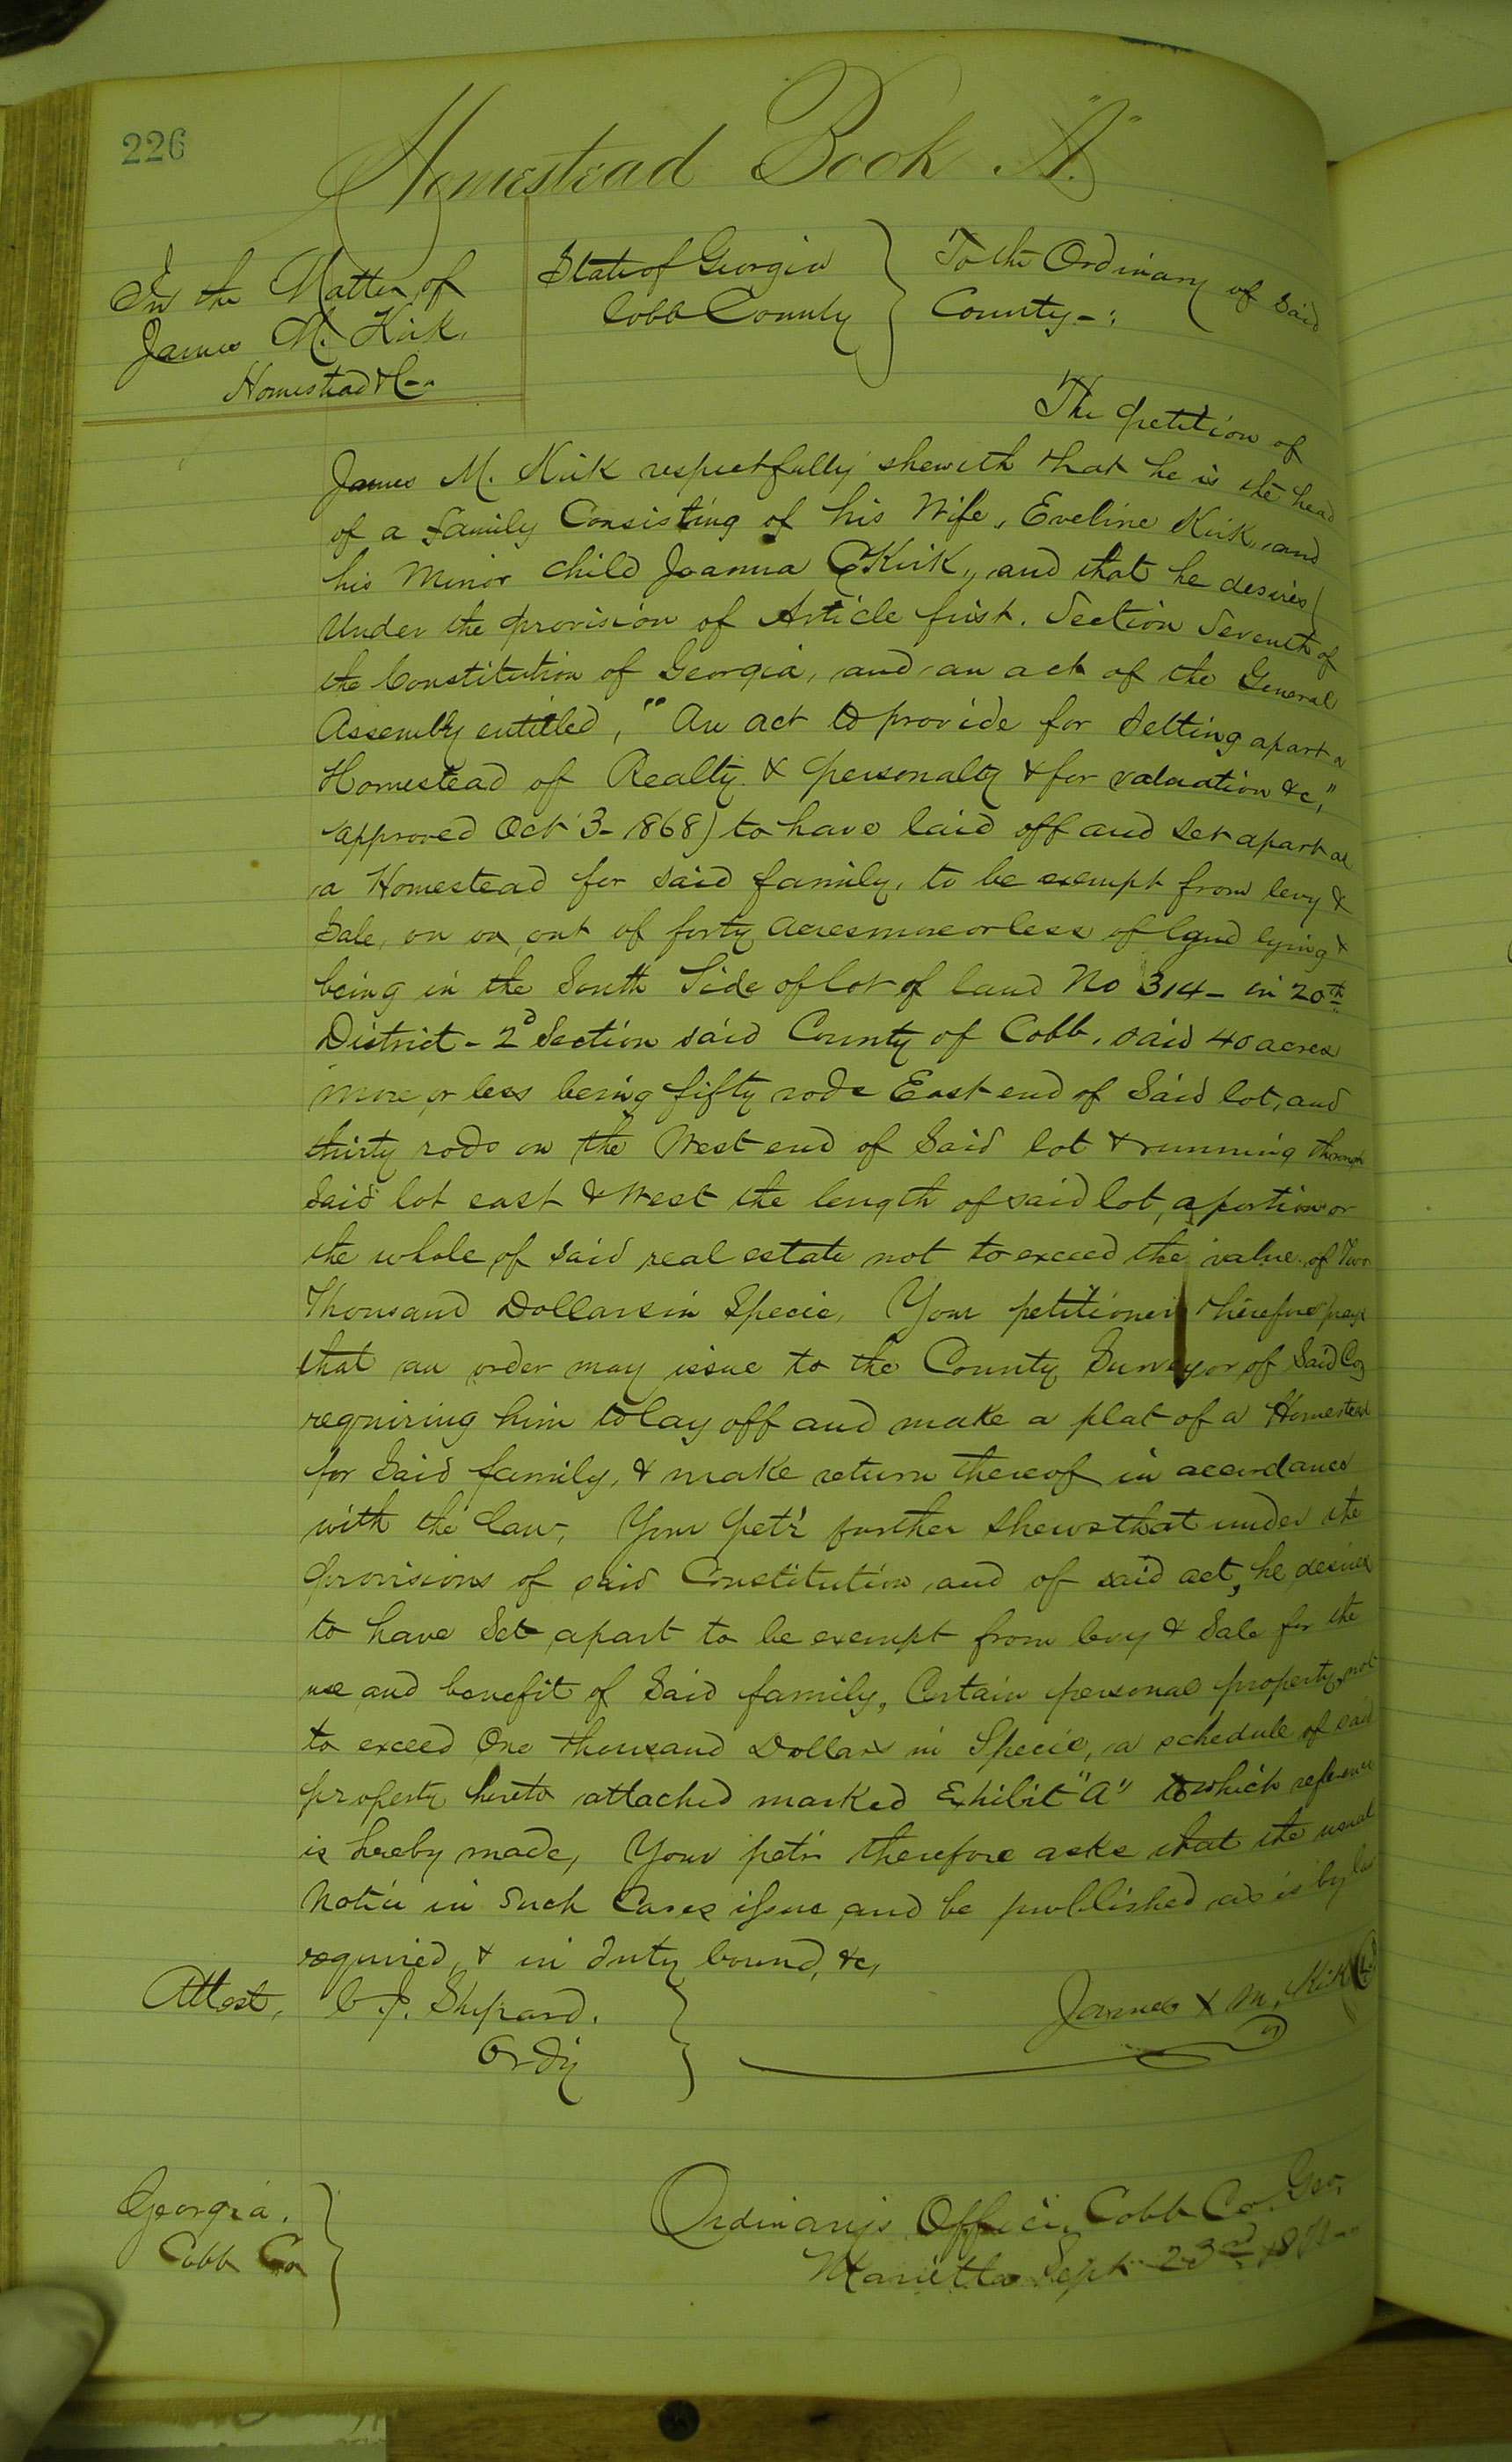 226
Homestead Book "A."
In the Matter of
James M. Kirk.
Homestead &c--
State of Georgia
Cobb County
To the Ordinary of Said
County-:
The petition of
James M. Kirk respectfully sheweth that he is the head
of a family Consisting of his Wife, Eveline Kirk, and
his Minor child Joanna C Kirk, and that he desires (
Under the provision of Article first. Section Seventh of
the Constitution of Georgia, and an act of the General
Assembly entitled, "An act to provide for Setting apart a
Homestead of Realty & personalty & for valuation &c,"
approved Oct 3- 1868) to have laid off and set apart as
a Homestead for said family, to be exempt from levy &
Sale, on or out of forty acres more or less of land lying &
being in the South Side of lot of land No 314- in 20th
District- 2d Section said County of Cobb, said 40 acres
more or less being fifty rods East end of Said lot, and
thirty rods on the West end of Said lot & running through
Said lot east & West the length of said lot, a portion or
the whole of said real estate not to exceed the value of Two
Thousand Dollars in Specie, Your petitioner therefore prays
that an order may issue to the County Surveyor of Said Co
requiring him to lay off and make a plat of a Homestead
for Said family, & make return thereof in accordance
with the law, Your Pet'r further shews that under the
provisions of said Constitution and of said act, he desires
to have Set apart to be exempt from levy & Sale for the
use and benefit of Said family, Certain personal property, not
to exceed One thousand Dollars in Specie, a schedule of said
property hereto attached marked Exhibit "A" to which reference
is hereby made, Your pet'r therefore asks that the usual
Notice in Such Cases issue and be published as is by law
required, & in duty bound, &c,
Attest, C. J. Shepard.
Ordy
James X M. Kirk
Georgia.
Cobb Co
Ordinary's Office, Cobb Co. Geo,
Marietta Sept 23rd